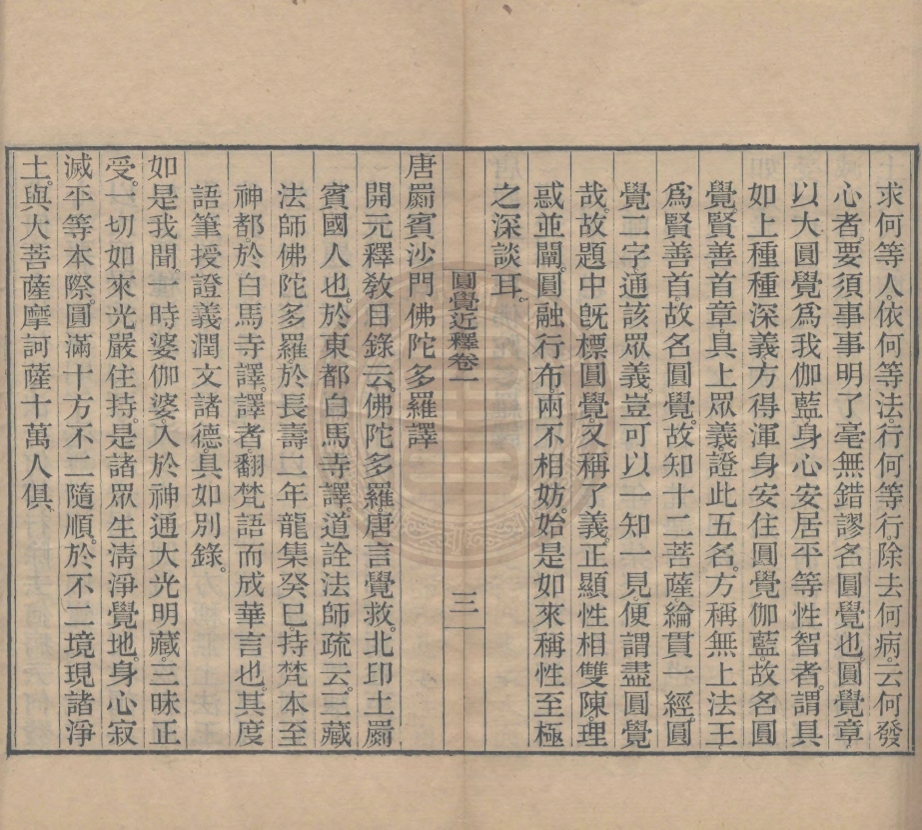 求何等人。依何等法。行何等行。除去何病。云何發
心者。要須事事明了毫無錯謬名圓覺也。圓覺章
以大圓覺爲我伽藍。身心安居平等性智者。謂具
如上種種深義方得渾身安住圓覺伽藍。故名圓
覺賢善首章。具上眾義。證此五名。方稱無上法王。
爲賢善首。故名圓覺。故知十二菩薩。綸貫一經。圓
覺二字通該眾義豈可以一知一見。便謂盡圓覺
哉。故題中旣標圓覺。又稱了義。正顯性相雙陳。理
惑並闡。圓融行布兩不相妨。始是如來稱性至極
之深談耳。
圓覺近釋卷一
三
唐罽賓沙門佛陀多羅譯
開元釋敎目錄云。佛陀多羅。唐言覺救。北印土罽
賓國人也。於東都白馬寺譯。道詮法師疏云。三藏
法師佛陀多羅於長壽二年龍集癸巳持梵本至
神都於白馬寺譯。譯者翻梵語而成華言也。其度
語筆授證義潤文諸德。具如別錄。
如是我聞。一時婆伽婆。入於神通大光明藏。三昧正
受。一切如來光嚴住持。是諸眾生清淨覺地。身心寂
滅平等本際。圓滿十方不二隨順。於不二境現諸淨
土。與大菩薩摩訶薩十萬人俱。